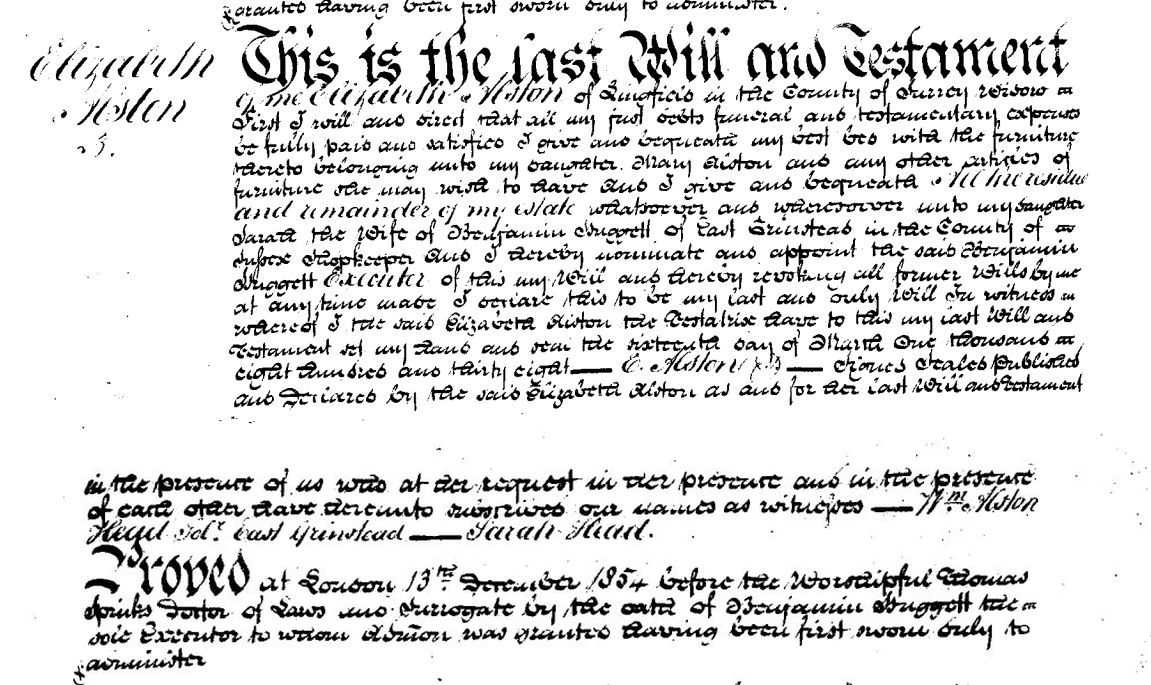 granted having been first sworn duly to administer.
Elizabeth
Alston
3.
This is the last Will and Testament
of me Elizabeth Alston of Lingfield in the County of Surrey Widow
First I will and direct that all my just debts funeral and testamentary expenses
be fully paid and satisfied I give and bequeath my best bed with the furniture
thereto belonging unto my daughter Mary Alston and any other articles of
furniture she may wish to have And I give and bequeath All the residue
and remainder of my estate whatsoever and wheresoever unto my daughter
Sarah the Wife of Benjamin Huggett of East Grinstead in the County of
Sussex Shopkeeper And I hereby nominate and appoint the said Benjamin
Huggett Executor of this my Will and hereby revoking all former Wills by me
at any time made I declare this to be my last and only Will In witness
whereof I the said Elizabeth Alston the Testatrix have to this my last Will and
Testament set my hand and seal the sixteenth day of March One thousand
eight hundred and thirty eight — E. Alston (LS) — Signed Sealed Published
and Declared by the said Elizabeth Alston as and for her last Will and Testament
in the presence of us who at her request in her presence and in the presence
of each other have hereunto subscribed our names as witnesses — Wm. Alston
Head Solr. East Grinstead — Sarah Head.
Proved at London 13th December 1854 before the Worshipful Thomas
Spinks Doctor of Laws and Surrogate by the oath of Benjamin Huggett the
sole Executor to whom Admon was granted having been first sworn duly to
administer